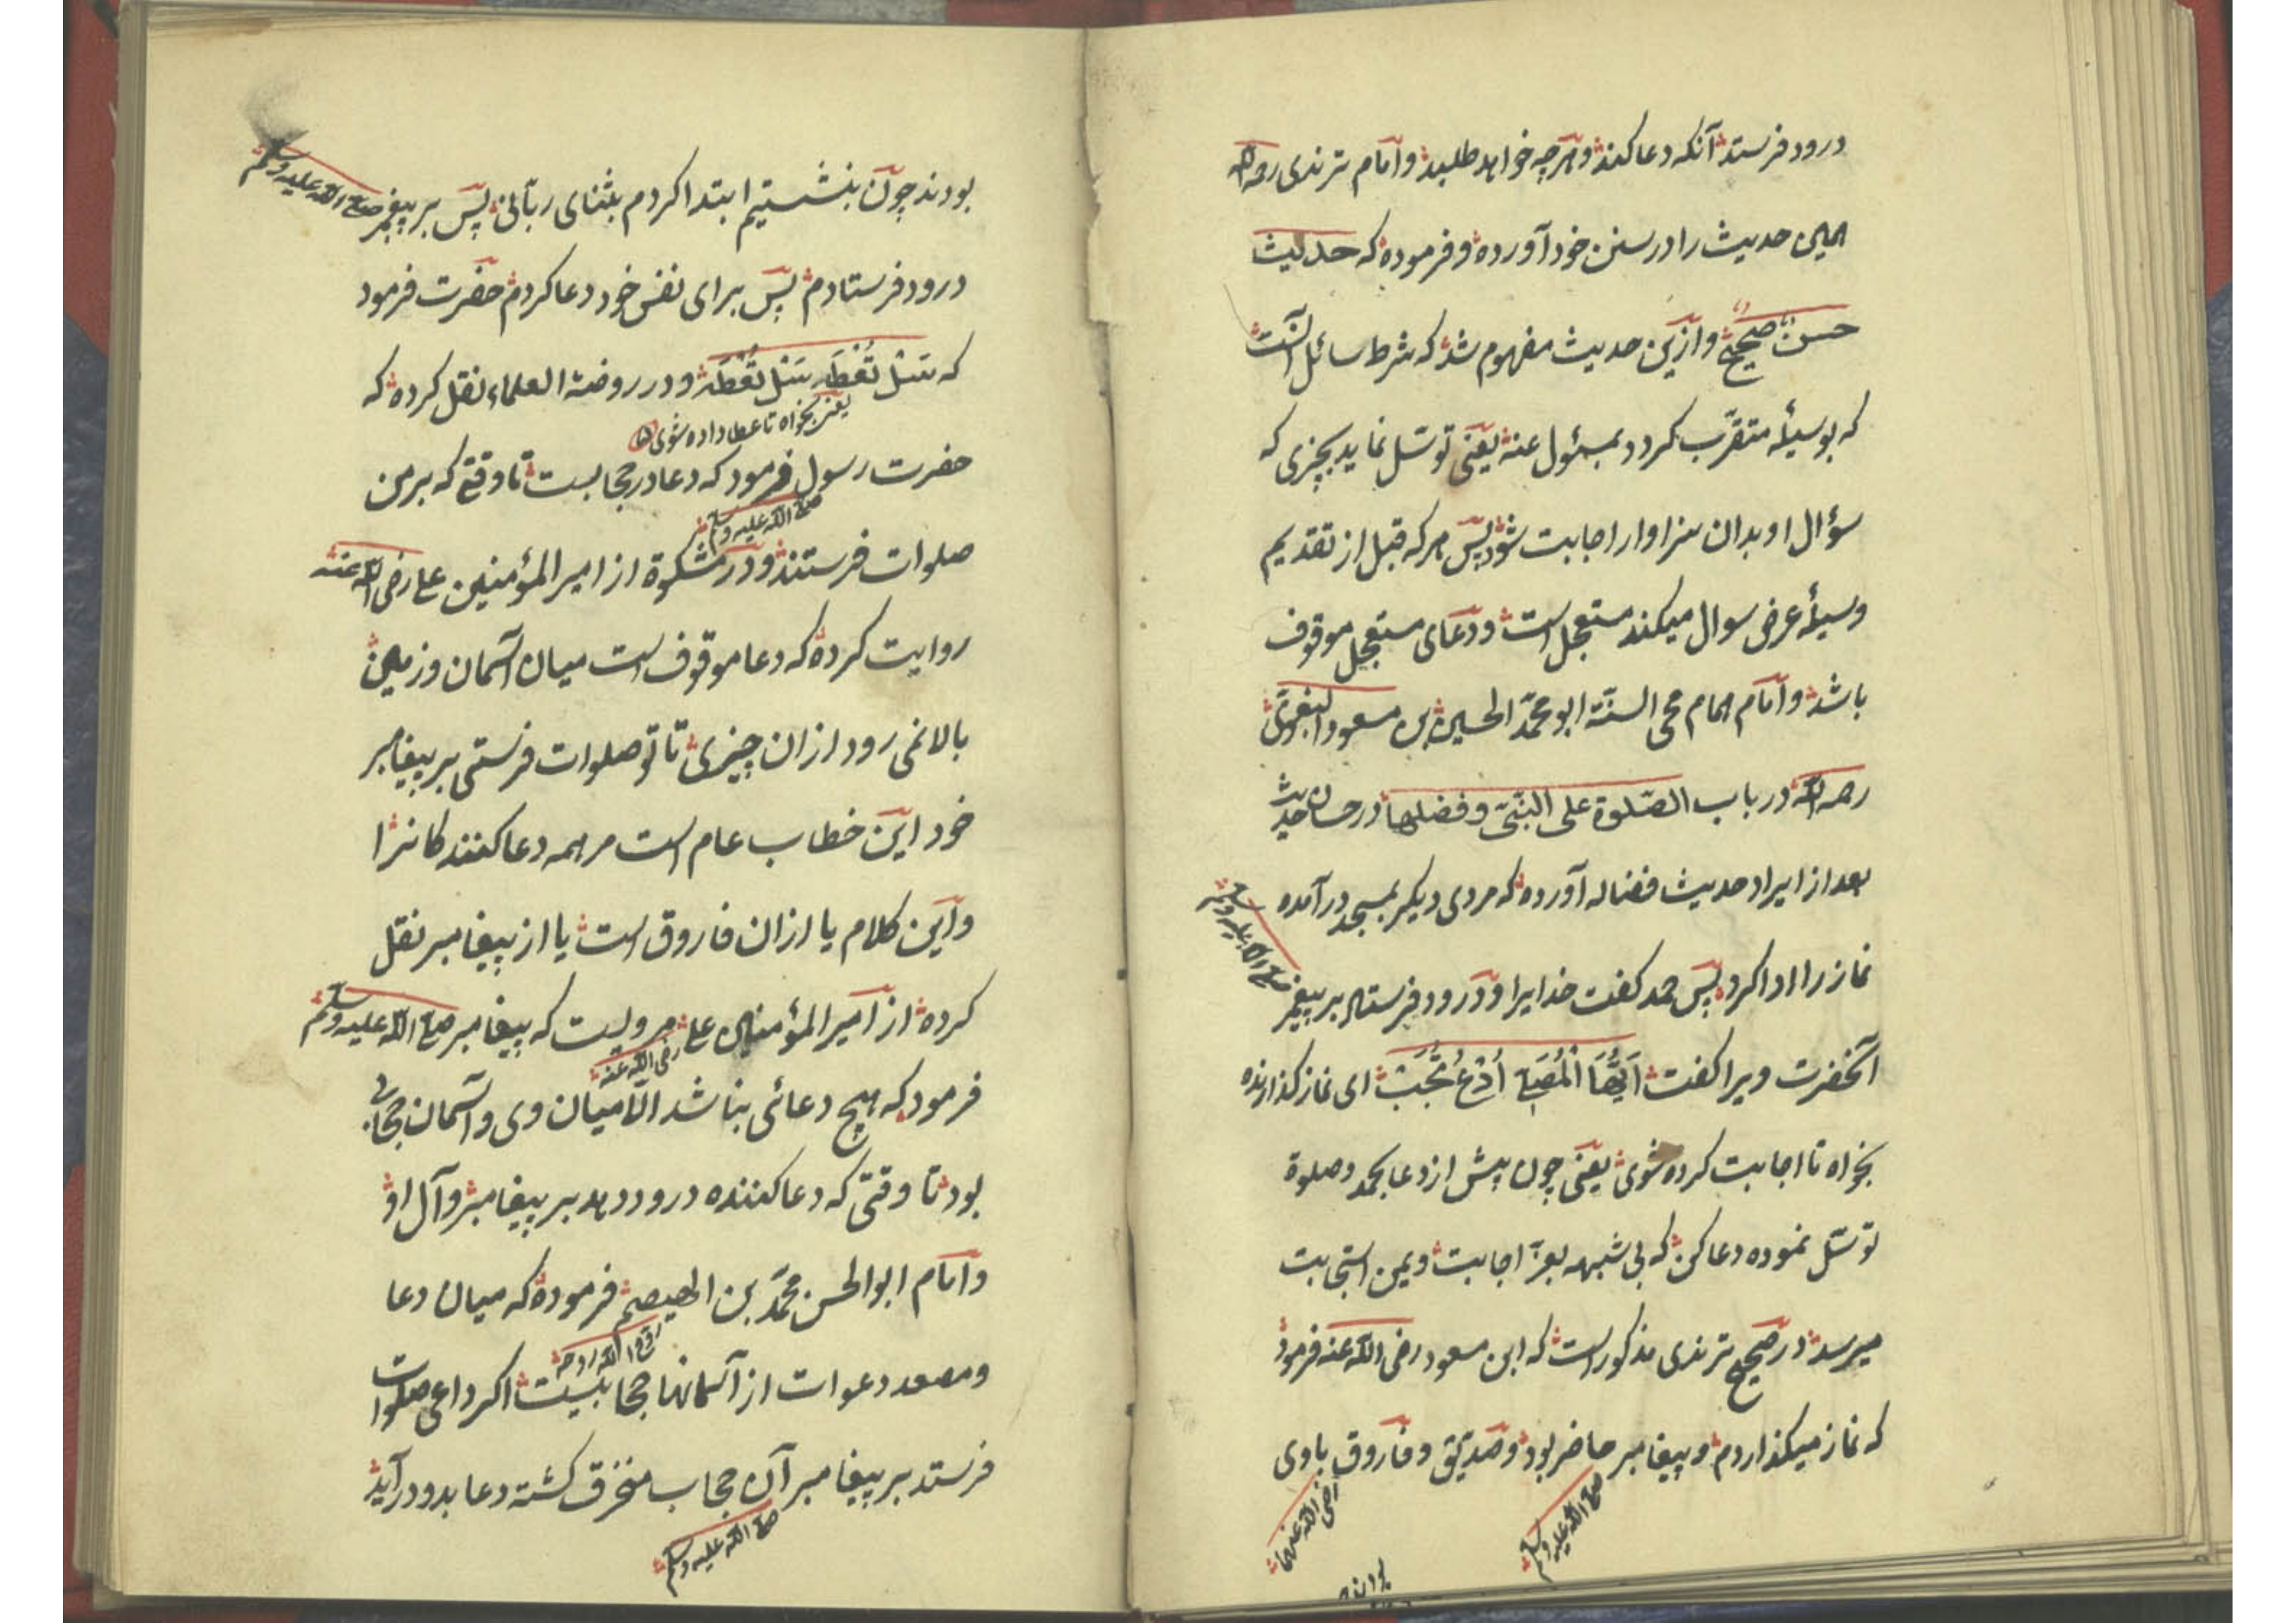 درود فرستد آنکه دعا کند و هرچه خواهد طلبد و امام ترمذی رحمه الله
همین حدیث را در سنن خود آورده و فرموده که حدیث
حسن صحیح و ازین حدیث مفهوم شد که شرط سائل آنست
که بوسیلهٔ متقرّب کردد بمسئول عنه یعنی توسّل نماید بچیزی که
سؤال او بدان سزاوار اجابت شود پس هرکه قبل از تقدیم
وسیلهٔ عرض سوال میکند مستعجل است و دعای مستعجل موقوف
باشد و امام همام محی السنّة ابو محمّد الحسین بن مسعود البغوی
رحمه الله در باب الصّلوة علی النّبیّ و فضلها در حسان حدیث
بعد از ایراد حدیث فضاله آورده که مردی دیکر بمسجد درآمده
نماز را ادا کرد پس حمد کفت خدایرا و درود فرستاد بر پیغمبر صلی الله علیه وسلم
آنحضرت ویرا کفت اَیُّهَا الْمُصَلِّی اُدْعُ تُجَبْ ای نماز کذارنده
بخواه تا اجابت کرده شوی یعنی چون پیش از دعا بحمد و صلوة
توسّل نموده دعا کن که بی شبهه بعزّ اجابت و یمن استجابت
میرسد در صحیح ترمذی مذکور است که ابن مسعود رضی الله عنه فرمود
که نماز میکذاردم و پیغامبر حاضر بود و صدّیق و فاروق باوی
صلی الله علیه وسلم
رضی الله عنهما
بودند
بودند چون بنشستیم ابتدا کردم بثنای ربّانی پس بر پیغمبر صلی الله علیه وسلم
درود فرستادم پس برای نفس خود دعا کردم حضرت فرمود
که سَلْ تُعْطَه سَلْ تُعْطَه و در روضة العلماء نقل کرده که
یعنی بخواه تا عطا داده شوی
حضرت رسول فرمود که دعا در حجابست تا وقتی که بر من
صلی الله علیه وسلم
صلوات فرستند و در مشکوة از امیر المؤمنین علی رضی الله عنه
روایت کرده که دعا موقوف است میان آسمان و زمین
بالا نمی رود ازان چیزی تا تو صلوات فرستی بر پیغامبر
خود این خطاب عام است مر همه دعا کنندکانرا
و این کلام یا ازان فاروق است یا از پیغامبر نقل
کرده از امیر المؤمنین علی مرویست که پیغامبر صلی الله علیه وسلم
رضی الله عنه
فرمود که هیچ دعائی نباشد الّا میان وی و آسمان حجابی
بود تا وقتی که دعا کننده درود دهد بر پیغامبر و آل او
و امام ابو الحسن محمّد بن الهیصم فرموده که میان دعا
روّح الله روحه
و مصعد دعوات از آسمانها حجابیست اکر داعی صلوات
فرستد بر پیغامبر آن حجاب منخرق کشته دعا بدو درآید
صلی الله علیه وسلم